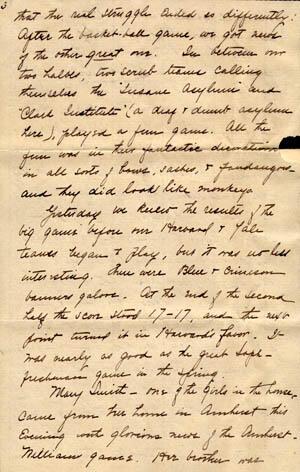 3
that the real struggle ended so differently.
After the basket-ball game, we got news
of the other great one. In between our
two halves, two scrub teams calling
themselves the "Insane Asylum" and
"Clark Institute" (a deaf & dumb asylum
here), played a fun game. All the
fun was in their fantastic decorations
in all sorts of bows, sashes, & fandangos
and they did look like monkeys.
Yesterday we knew the results of the
big game before our Harvard & Yale
teams began to play, but it was no less
interesting. There were Blue & Crimson
banners galore. At the end of the second
half the score stood 17-17, and the next
point turned it in Harvard's favor. It
was nearly as good as the great Soph-
freshman game in the Spring.
Mary Smith - one of the girls in the house,
came from her home in Amherst this
Evening with glorious news of the Amherst-
Williams game. Her brother was